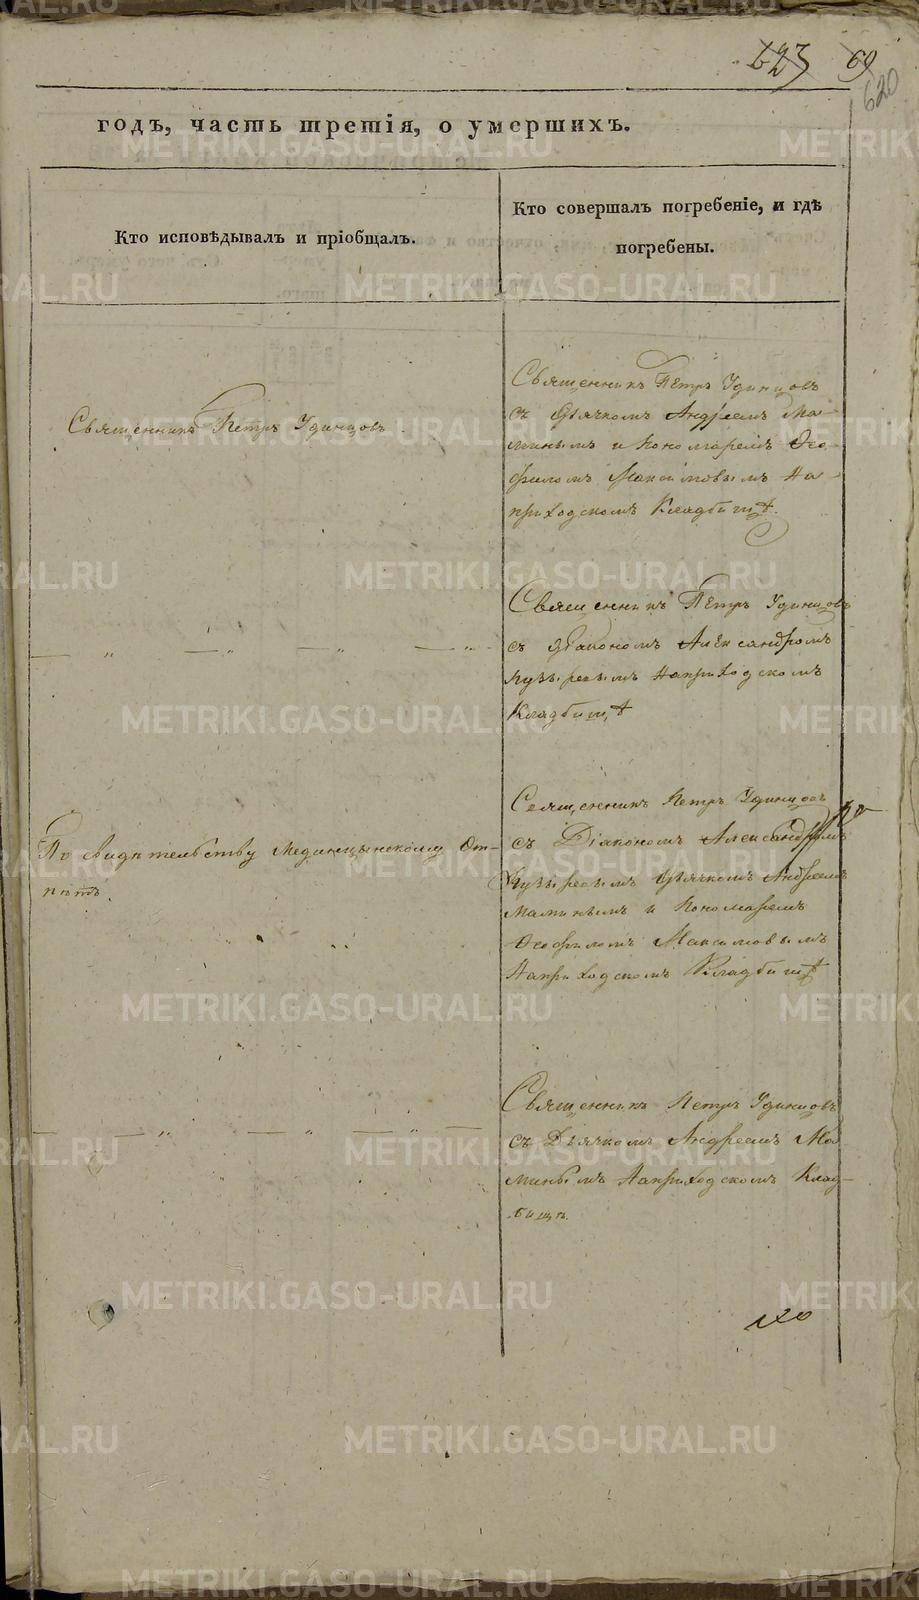 623 69
620
годъ, часть третія, о умершихъ.
Кто исповѣдывалъ и пріобщалъ.
Кто совершалъ погребеніе, и гдѣ
погребены.
Священникъ Петръ Удинцовъ
Священникъ Петръ Удинцовъ
съ Дьячкомъ Андреемъ Ма-
минымъ и Пономаремъ Ѳео-
филомъ Максимовымъ На
приходскомъ Кладбищѣ.
— „ —„ — „ —„
Священникъ Петръ Удинцовъ
съ Діакономъ Александромъ
Пузыревымъ На приходскомъ
Кладбищѣ
По свидѣтельству Медицынскому От-
пѣтъ.
Священникъ Петръ Удинцовъ
съ Діакономъ Александромъ
Пузыревымъ Дьячкомъ Андреемъ
Маминымъ и Пономаремъ
Ѳеофиломъ Максимовымъ
На приходскомъ Кладбищѣ
— — „ — „ — „ —
Священникъ Петръ Удинцовъ
съ Дьячкомъ Андреемъ Ма
минымъ На приходскомъ Клад-
бищѣ.
METRIKI.GASO-URAL.RU